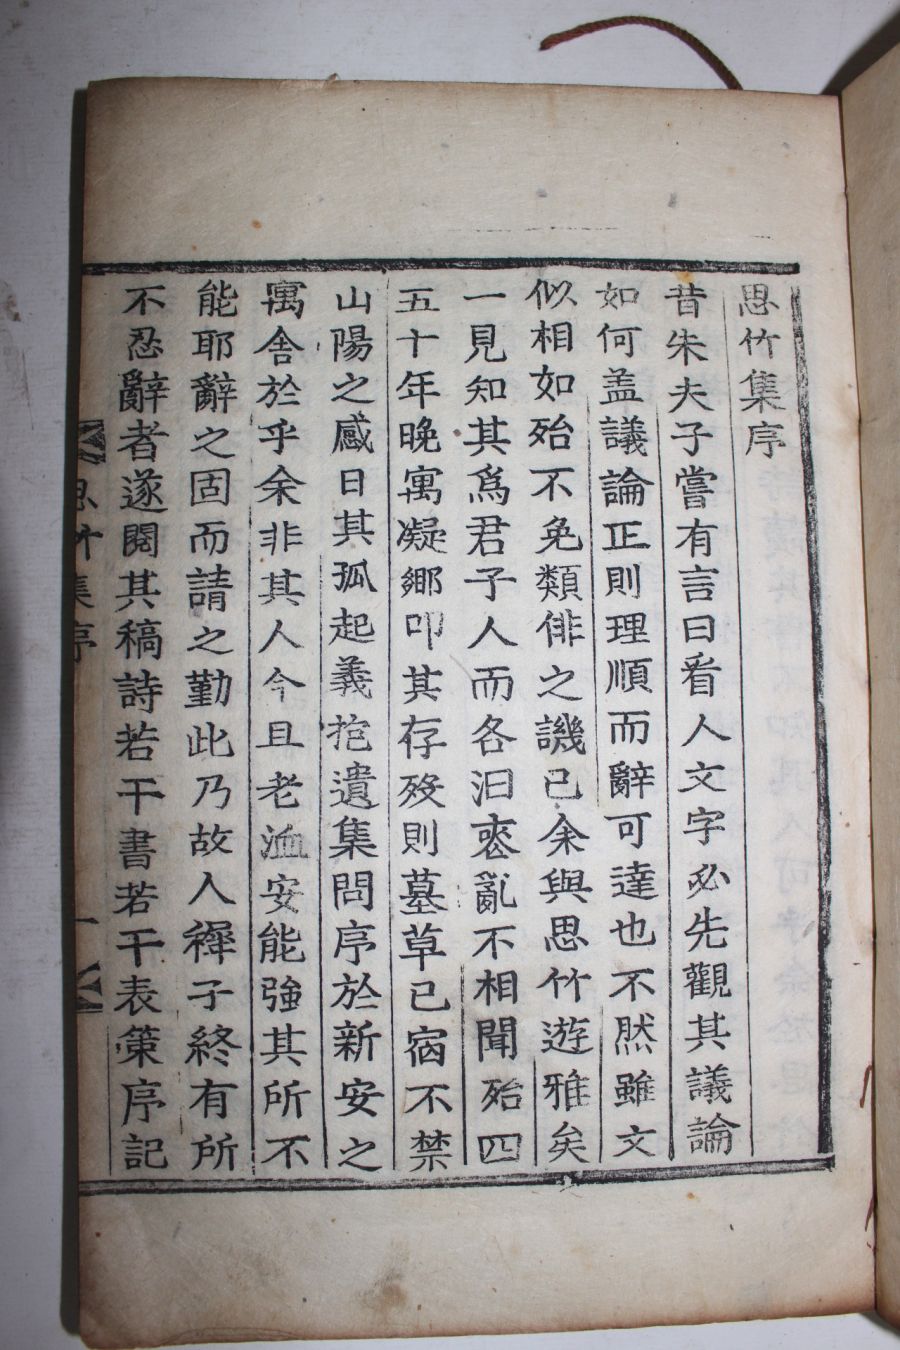 思竹集序
昔朱夫子嘗有言曰看人文字必先觀其議論
如何盖議論正則理順而辭可達也不然雖文
似相如殆不免類俳之譏已余與思竹遊雅矣
一見知其爲君子人而各汩丧亂不相聞殆四
五十年晚寓凝鄉叩其存殁則墓草已宿不禁
山陽之感日其孤起義抱遺集問序於新安之
寓舍於乎余非其人今且老洫安能強其所不
能耶辭之固而請之勤此乃故人穉子終有所
不忍辭者遂閱其稿詩若干書若干表策序記
思竹集序
一